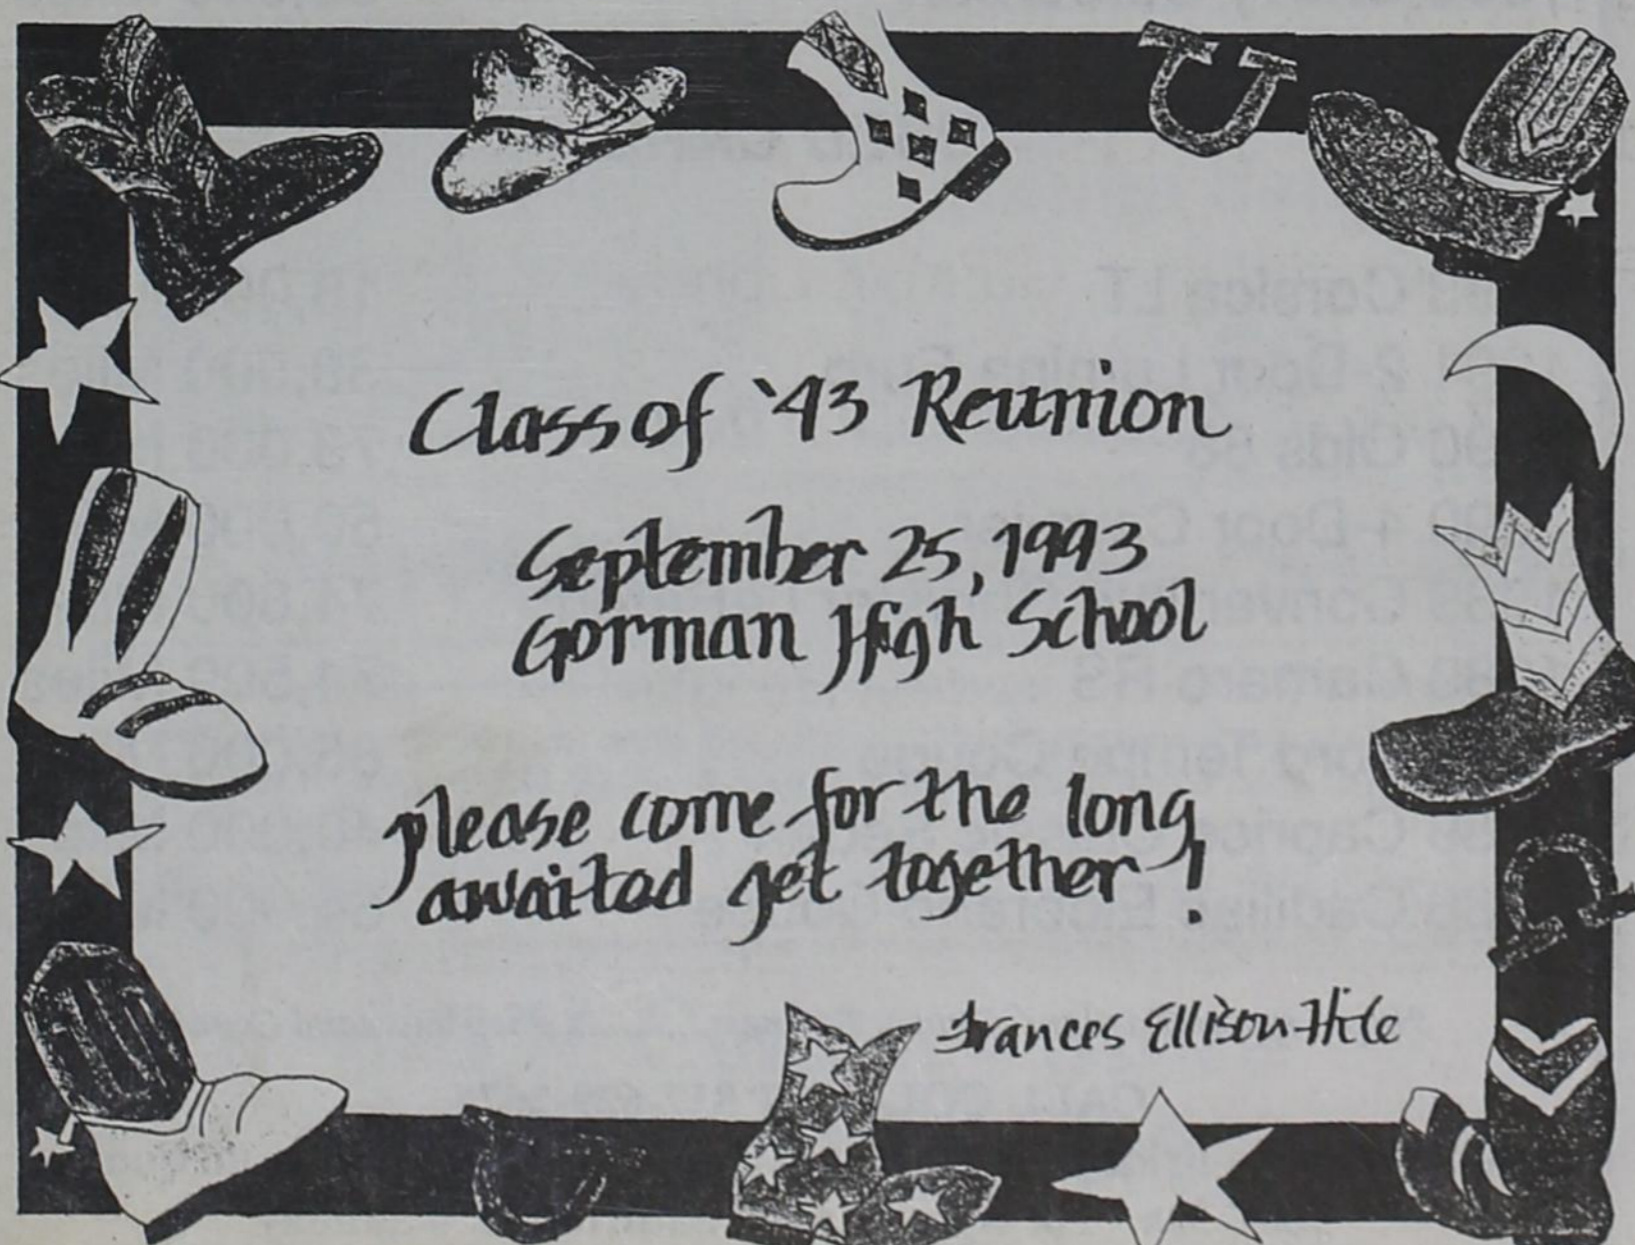 Class of '43 Reunion
September 25, 1993
Gorman High School
please come for the long
awaited get together!
Frances Ellison